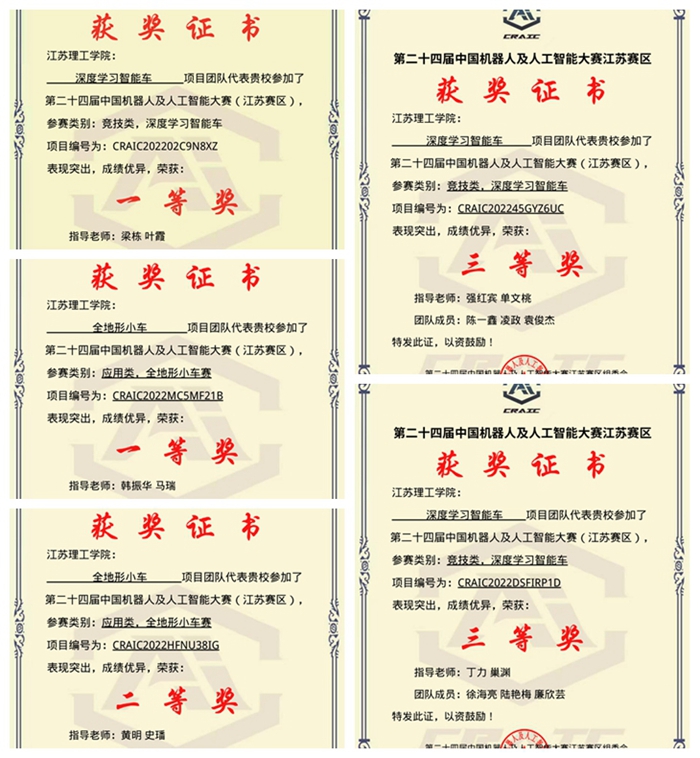 获奖证书
江苏理工学院：
深度学习智能车 项目团队代表贵校参加了
第二十四届中国机器人及人工智能大赛（江苏赛区），
参赛类别：竞技类，深度学习智能车
项目编号为：CRAIC202202C9N8XZ
表现突出，成绩优异，荣获：
一等奖
指导老师：梁栋 叶霞
获奖证书
江苏理工学院：
全地形小车 项目团队代表贵校参加了
第二十四届中国机器人及人工智能大赛（江苏赛区），
参赛类别：应用类，全地形小车赛
项目编号为：CRAIC2022MC5MF21B
表现突出，成绩优异，荣获：
一等奖
指导老师：韩振华 马瑞
获奖证书
江苏理工学院：
全地形小车 项目团队代表贵校参加了
第二十四届中国机器人及人工智能大赛（江苏赛区），
参赛类别：应用类，全地形小车赛
项目编号为：CRAIC2022HFNU38IG
表现突出，成绩优异，荣获：
二等奖
指导老师：黄明 史璠
CRAIC
第二十四届中国机器人及人工智能大赛江苏赛区
获奖证书
江苏理工学院：
深度学习智能车 项目团队代表贵校参加了
第二十四届中国机器人及人工智能大赛（江苏赛区），
参赛类别：竞技类，深度学习智能车
项目编号为：CRAIC202245GYZ6UC
表现突出，成绩优异，荣获：
三等奖
指导老师：强红宾 单文桃
团队成员：陈一鑫 凌政 袁俊杰
特发此证，以资鼓励！
第二十四届中国机器人及人工智能大赛江苏赛区组委会
CRAIC
第二十四届中国机器人及人工智能大赛江苏赛区
获奖证书
江苏理工学院：
深度学习智能车 项目团队代表贵校参加了
第二十四届中国机器人及人工智能大赛（江苏赛区），
参赛类别：竞技类，深度学习智能车
项目编号为：CRAIC2022DSFIRP1D
表现突出，成绩优异，荣获：
三等奖
指导老师：丁力 巢渊
团队成员：徐海亮 陆艳梅 廉欣芸
特发此证，以资鼓励！
第二十四届中国机器人及人工智能大赛江苏赛区组委会